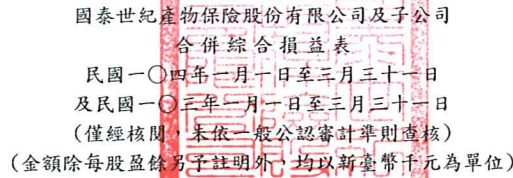 國泰世紀產物保險股份有限公司及子公司
合併綜合損益表
民國一〇四年一月一日至三月三十一日
及民國一〇三年一月一日至三月三十一日
(僅經核閱，未依一般公認審計準則查核)
(金額除每股盈餘另予註明外，均以新臺幣千元為單位)